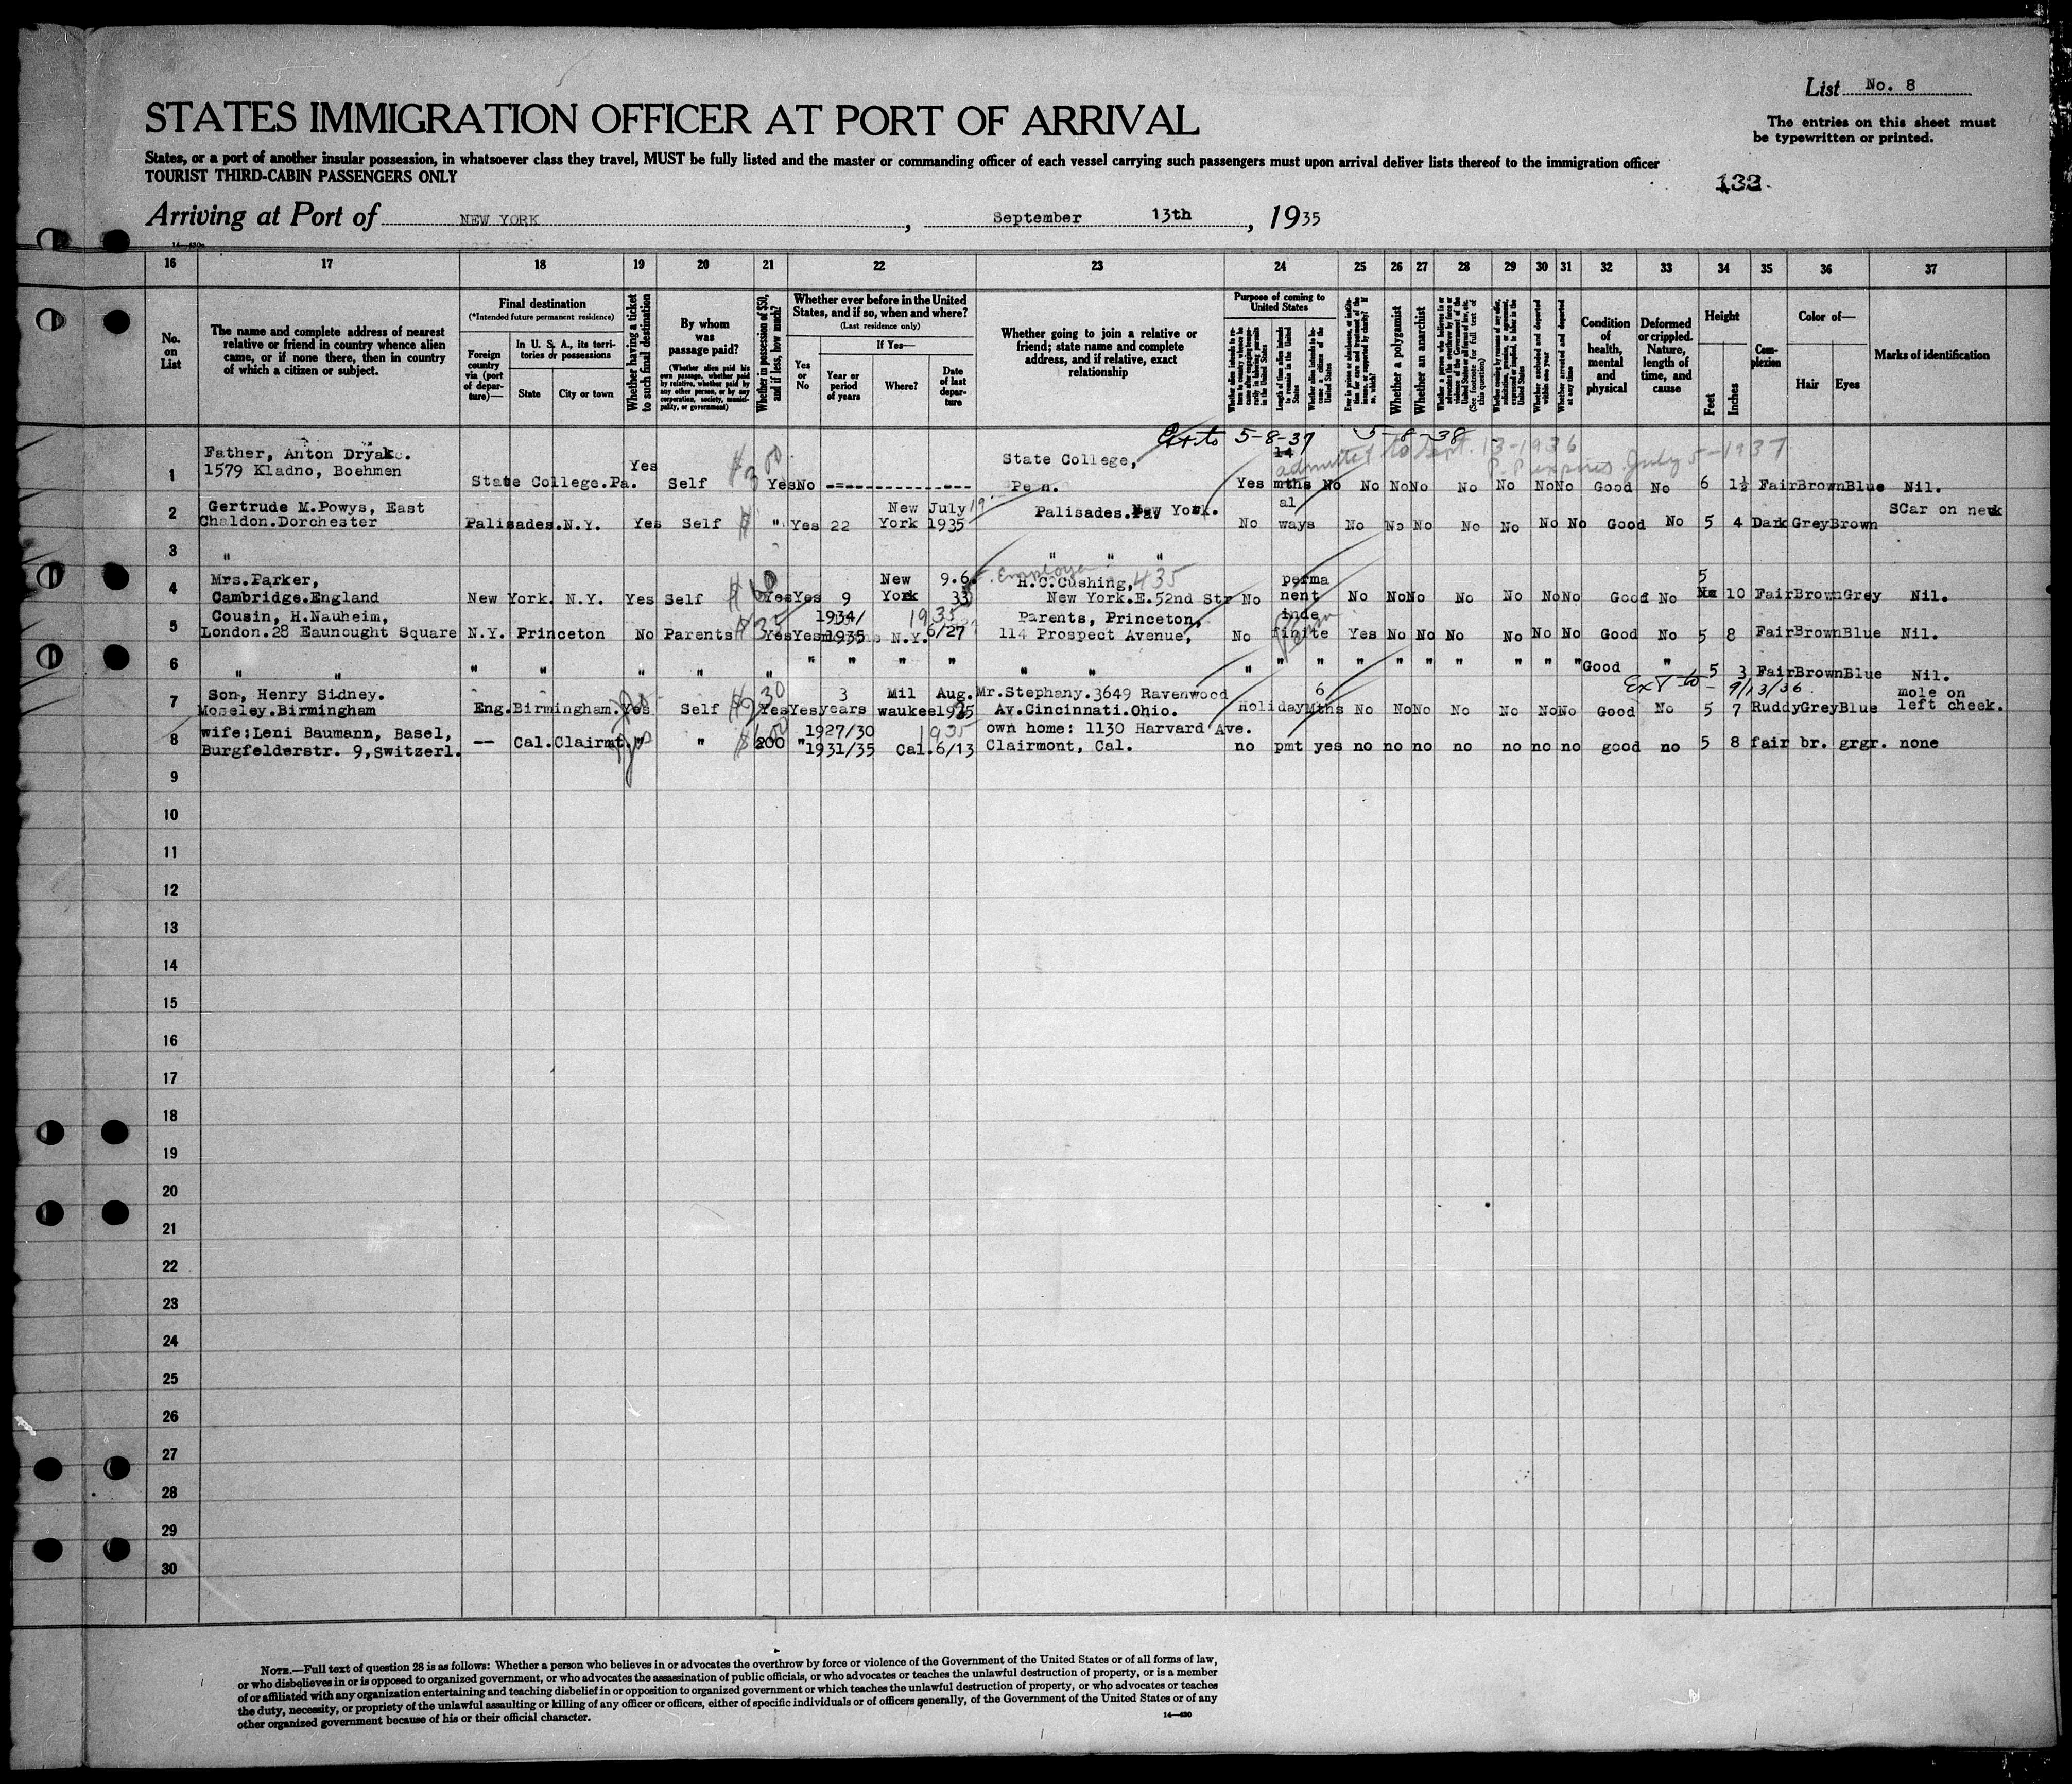 List No. 8
STATES IMMIGRATION OFFICER AT PORT OF ARRIVAL
The entries on this sheet must
be typewritten or printed.
States, or a port of another insular possession, in whatsoever class they travel, MUST be fully listed and the master or commanding officer of each vessel carrying such passengers must upon arrival deliver lists thereof to the immigration officer
TOURIST THIRD-CABIN PASSENGERS ONLY
132.
Arriving at Port of NEW YORK, September 13th, 1935
16 17 18 19 20 21 22 23 24 25 26 27 28 29 30 31 32 33 34 35 36 37
No. on List
The name and complete address of nearest
relative or friend in country whence alien
came, or if none there, then in country
of which a citizen or subject.
Final destination
(*Intended future permanent residence)
Foreign country via (port of departure)—
In U. S. A., its territories or possessions
State
City or town
Whether having a ticket to such final destination
By whom was passage paid?
(Whether alien paid his own passage, whether paid by relative, whether paid by any other person, or by any corporation, society, municipality, or government)
Whether in possession of $50, and if less, how much?
Whether ever before in the United
States, and if so, when and where?
(Last residence only)
Yes or No
If Yes—
Year or period of years
Where?
Date of last departure
Whether going to join a relative or
friend; state name and complete
address, and if relative, exact
relationship
Purpose of coming to United States
Length of time alien intends to remain in the United States
Whether alien intends to become a citizen of the United States
Whether a polygamist
Whether an anarchist
Whether excluded and deported within one year
Whether arrested and deported at any time
Condition of health, mental and physical
Deformed or crippled. Nature, length of time, and cause
Height
Feet
Inches
Complexion
Color of—
Hair
Eyes
Marks of identification
Ext to 5-8-37 5-8-38
admitted to Sept. 13-1936
P.P. expires July 5-1937
1 Father, Anton Dryak.
1579 Kladno, Boehmen State College.Pa. Yes Self $300 Yes No State College, Penn. Yes 14 mths No No No No No No No No Good No 6 1½ Fair Brown Blue Nil.
2 Gertrude M.Powys, East
Chaldon.Dorchester Palisades.N.Y. Yes Self $ " Yes 22 New York July 1935 Palisades. New York. No al ways No No No No No No No Good No 5 4 Dark Grey Brown SCar on neck
3 " " " "
4 Mrs.Parker,
Cambridge.England New York. N.Y. Yes Self $60 Yes Yes 9 New York 9.6. 33 Employer H.C.Cushing, 435
New York.E.52nd Str No perma nent No No No No No No No Good No 5 10 Fair Brown Grey Nil.
5 Cousin, H.Nauheim,
London.28 Eaunought Square N.Y. Princeton No Parents $35 Yes Yes 1934/ 1935 N.Y. 1935 6/27 Parents, Princeton,
114 Prospect Avenue, No inde finite Perm Yes No No No No No No Good No 5 8 Fair Brown Blue Nil.
6 " " " " " " " " " " " " " " " " " " " " " " " Good " 5 3 Fair Brown Blue Nil.
Ext to - 9/13/36
7 Son, Henry Sidney.
Moseley.Birmingham Eng.Birmingham. Yes Self $230 Yes Yes 3 years Mil waukee Aug. 1925 Mr.Stephany.3649 Ravenwood
Av.Cincinnati.Ohio. Holiday 6 Mths No No No No No No No Good No 5 7 Ruddy Grey Blue mole on left cheek.
8 wife:Leni Baumann, Basel,
Burgfelderstr. 9,switzerl. -- Cal.Clairmt. yes " 200 " 1927/30 1931/35 Cal. 1935 6/13 own home: 1130 Harvard Ave.
Clairmont, Cal. no pmt yes no no no no no no no good no 5 8 fair br. grgr. none
9
10
11
12
13
14
15
16
17
18
19
20
21
22
23
24
25
26
27
28
29
30
NOTE.—Full text of question 28 is as follows: Whether a person who believes in or advocates the overthrow by force or violence of the Government of the United States or of all forms of law,
or who disbelieves in or is opposed to organized government, or who advocates the assassination of public officials, or who advocates or teaches the unlawful destruction of property, or is a member
of or affiliated with any organization entertaining and teaching disbelief in or opposition to organized government or which teaches the unlawful destruction of property, or who advocates or teaches
the duty, necessity, or propriety of the unlawful assaulting or killing of any officer or officers, either of specific individuals or of officers generally, of the Government of the United States or of any
other organized government because of his or their official character.
14—430